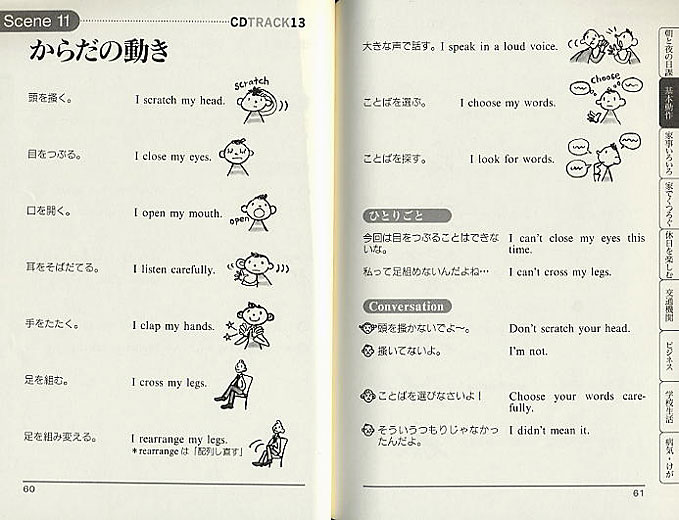 Scene 11
CDTRACK13
からだの動き
頭を掻く。 I scratch my head.
scratch
目をつぶる。 I close my eyes.
口を開く。 I open my mouth.
open
耳をそばだてる。 I listen carefully.
手をたたく。 I clap my hands.
足を組む。 I cross my legs.
足を組み変える。 I rearrange my legs.
*rearrange は「配列し直す」
60
大きな声で話す。 I speak in a loud voice.
ことばを選ぶ。 I choose my words.
choose
ことばを探す。 I look for words.
ひとりごと
今回は目をつぶることはできな I can't close my eyes this
いな。 time.
私って足組めないんだよね… I can't cross my legs.
Conversation
頭を掻かないでよ〜。 Don't scratch your head.
掻いてないよ。 I'm not.
ことばを選びなさいよ! Choose your words care-
fully.
そういうつもりじゃなかっ I didn't mean it.
たんだよ。
61
朝と夜の日課
基本動作
家事いろいろ
家でくつろぐ
休日を楽しむ
交通機関
ビジネス
学校生活
病気・けが